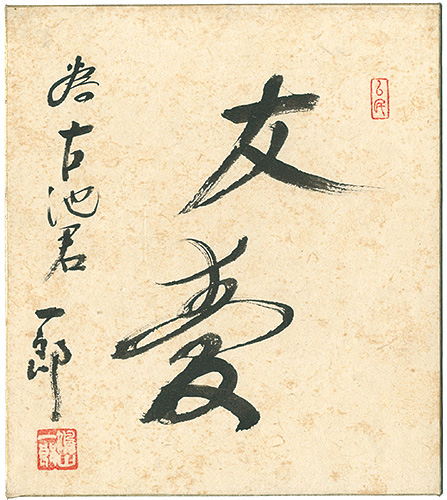 友愛
為古池君 一郎